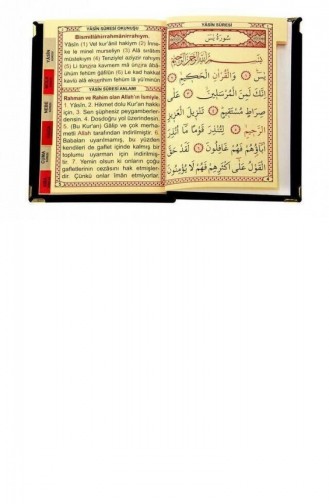 YÂSİN SÛRESİ OKUNUŞU
Bismillâhirrahmânirrahıym.
Yâsîn (1) Vel kur'ânil hakiym (2) İnne-
ke le minel murseliyn (3) Alâ sırâtim
müstekıym (4) Tenziylel aziyzir rahıym
(5) Li tünzira kavmem mâ ünzira âbâ-
ühüm fehüm ğâfilûn (6) Le kad hakkal
kavlü alâ ekserihim fehüm lâ yü'minûn
YÂSİN SÛRESİ ANLAMI
Rahman ve Rahim olan Allah'ın ismiyle.
1. Yâsîn, 2. Hikmet dolu Kur'an hakkı
için, 3. Sen şüphesiz peygamberler-
densin. 4. Dosdoğru yol üzerindesin.
5. (Bu Kur'an) Gâlip ve çok merha-
metli Allah tarafından indirilmiştir. 6.
Babaları uyarılmamış, bu yüzden
kendileri de gaflet içinde kalmış bir
toplumu uyarman için indirilmiş-
tir. 7. Yemin olsun ki onların çoğu
gafletlerinin cezasını hak etmişler-
dir. Çünkü onlar îmân etmiyorlar.
YÂSİN SÛRESİ
سُورَةُ يٰسٓ
بِسْمِ اللّٰهِ الرَّحْمٰنِ الرَّحِيمِ
يٰسٓ ﴿١﴾ وَالْقُرْاٰنِ الْحَكِيمِ ﴿٢﴾
اِنَّكَ لَمِنَ الْمُرْسَلِينَ ﴿٣﴾ عَلٰى
صِرَاطٍ مُسْتَقِيمٍ ﴿٤﴾ تَنْزِيلَ الْعَزِيزِ
الرَّحِيمِ ﴿٥﴾ لِتُنْذِرَ قَوْمًا مَا اُنْذِرَ
اٰبَاؤُهُمْ فَهُمْ غَافِلُونَ ﴿٦﴾ لَقَدْ حَقَّ
الْقَوْلُ عَلٰى اَكْثَرِهِمْ فَهُمْ لَا يُؤْمِنُونَ